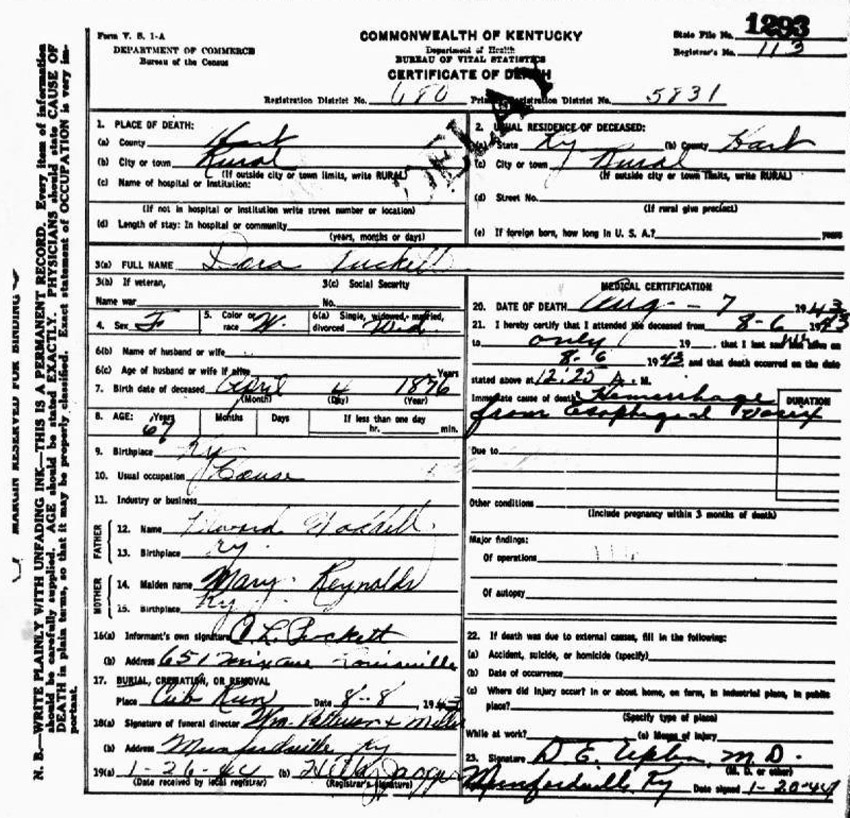 1293
Form V. S. 1-A
COMMONWEALTH OF KENTUCKY
State File No.
DEPARTMENT OF COMMERCE
Department of Health
Registrar's No. 113
Bureau of the Census
BUREAU OF VITAL STATISTICS
CERTIFICATE OF DEATH
DELAY
Registration District No. 680 Primary Registration District No. 5831
1. PLACE OF DEATH:
(a) County Hart
(b) City or town Rural
(If outside city or town limits, write RURAL)
(c) Name of hospital or institution:
(If not in hospital or institution write street number or location)
(d) Length of stay: In hospital or community
(years, months or days)
2. USUAL RESIDENCE OF DECEASED:
(a) State Ky (b) County Hart
(c) City or town Rural
(If outside city or town limits, write RURAL)
(d) Street No.
(If rural give precinct)
(e) If foreign born, how long in U. S. A.? years
3(a) FULL NAME Dora Puckett
3(b) If veteran, 3(c) Social Security
Name war No.
4. Sex F 5. Color or race W. 6(a) Single, widowed, married, divorced Wid
6(b) Name of husband or wife
6(c) Age of husband or wife if alive Years
7. Birth date of deceased April 4 1876
(Month) (Day) (Year)
8. AGE: Years Months Days If less than one day
67 hr. min.
9. Birthplace Ky
10. Usual occupation House
11. Industry or business
FATHER
12. Name
13. Birthplace Ky.
MOTHER
14. Maiden name Mary Reynolds
15. Birthplace Ky
16(a) Informant's own signature C. L. Puckett
(b) Address 651 Louisville
17. BURIAL, CREMATION, OR REMOVAL
Place Cub Run Date 8-8, 1943
18(a) Signature of funeral director Wm. & Miller
(b) Address Munfordville Ky
19(a) 1-26-44 (b)
(Date received by local registrar) (Registrar's signature)
MEDICAL CERTIFICATION
20. DATE OF DEATH Aug - 7 1943
21. I hereby certify that I attended the deceased from 8-6 1943
to only 19, that I last saw alive on
8-6 1943 and that death occurred on the date
stated above at 12:25 A. M.
Immediate cause of death Hemorrhage DURATION
from Esophageal Varix
Due to
Other conditions
(Include pregnancy within 3 months of death)
Major findings:
Of operations
Of autopsy
22. If death was due to external causes, fill in the following:
(a) Accident, suicide, or homicide (specify)
(b) Date of occurrence
(c) Where did injury occur? In or about home, on farm, in industrial place, in public
place?
(Specify type of place)
While at work? (e) Means of injury
23. Signature D. E. M. D.
(M. D. or other)
Munfordville, Ky Date signed 1-20-44
MARGIN RESERVED FOR BINDING
N. B.—WRITE PLAINLY WITH UNFADING INK—THIS IS A PERMANENT RECORD. Every item of information
should be carefully supplied. AGE should be stated EXACTLY. PHYSICIANS should state CAUSE OF
DEATH in plain terms, so that it may be properly classified. Exact statement of OCCUPATION is very im-
portant.